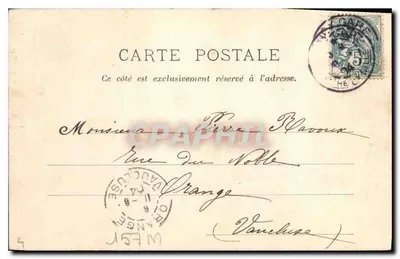 CARTE POSTALE
Ce côté est exclusivement réservé à l'adresse.
Monsieur Pierre Ravoux
Rue du Noble
Orange
(Vaucluse)
ORANGE
VAUCLUSE
GARE
5
157M
4